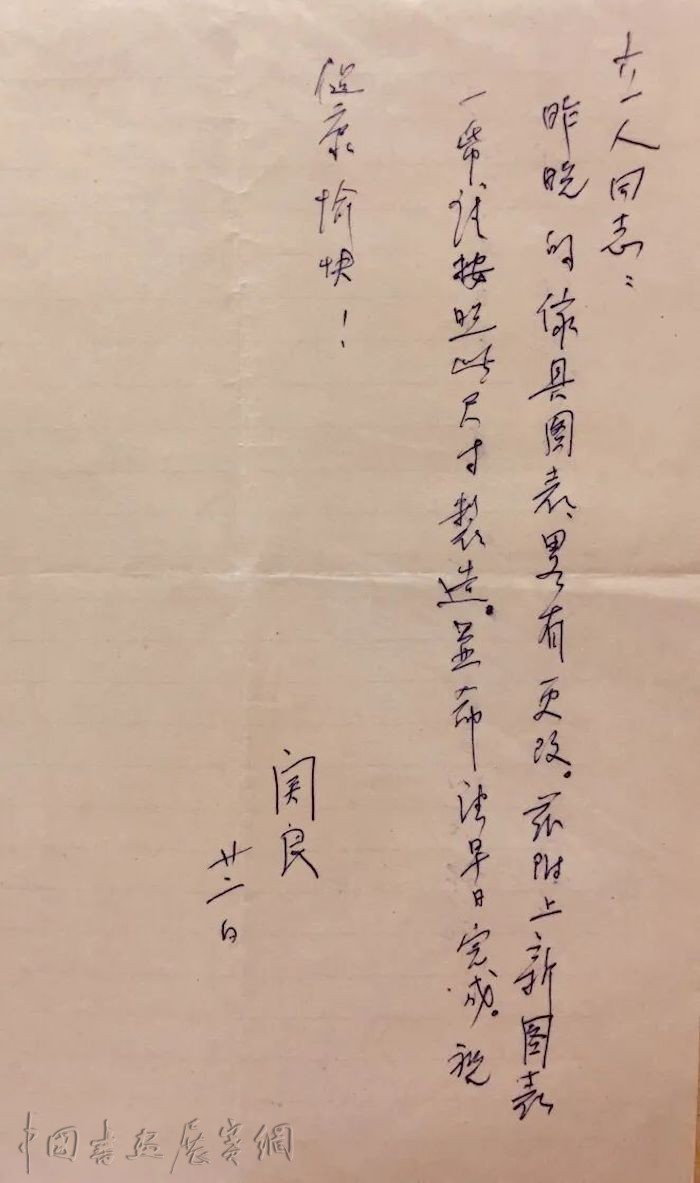 立人同志：
昨晚的傢具图表畧有更改。茲附上新图表
一帋請按照此尺寸製造。並希望早日完成。祝
健康愉快！
関良
廿二日
中國書画展賽網